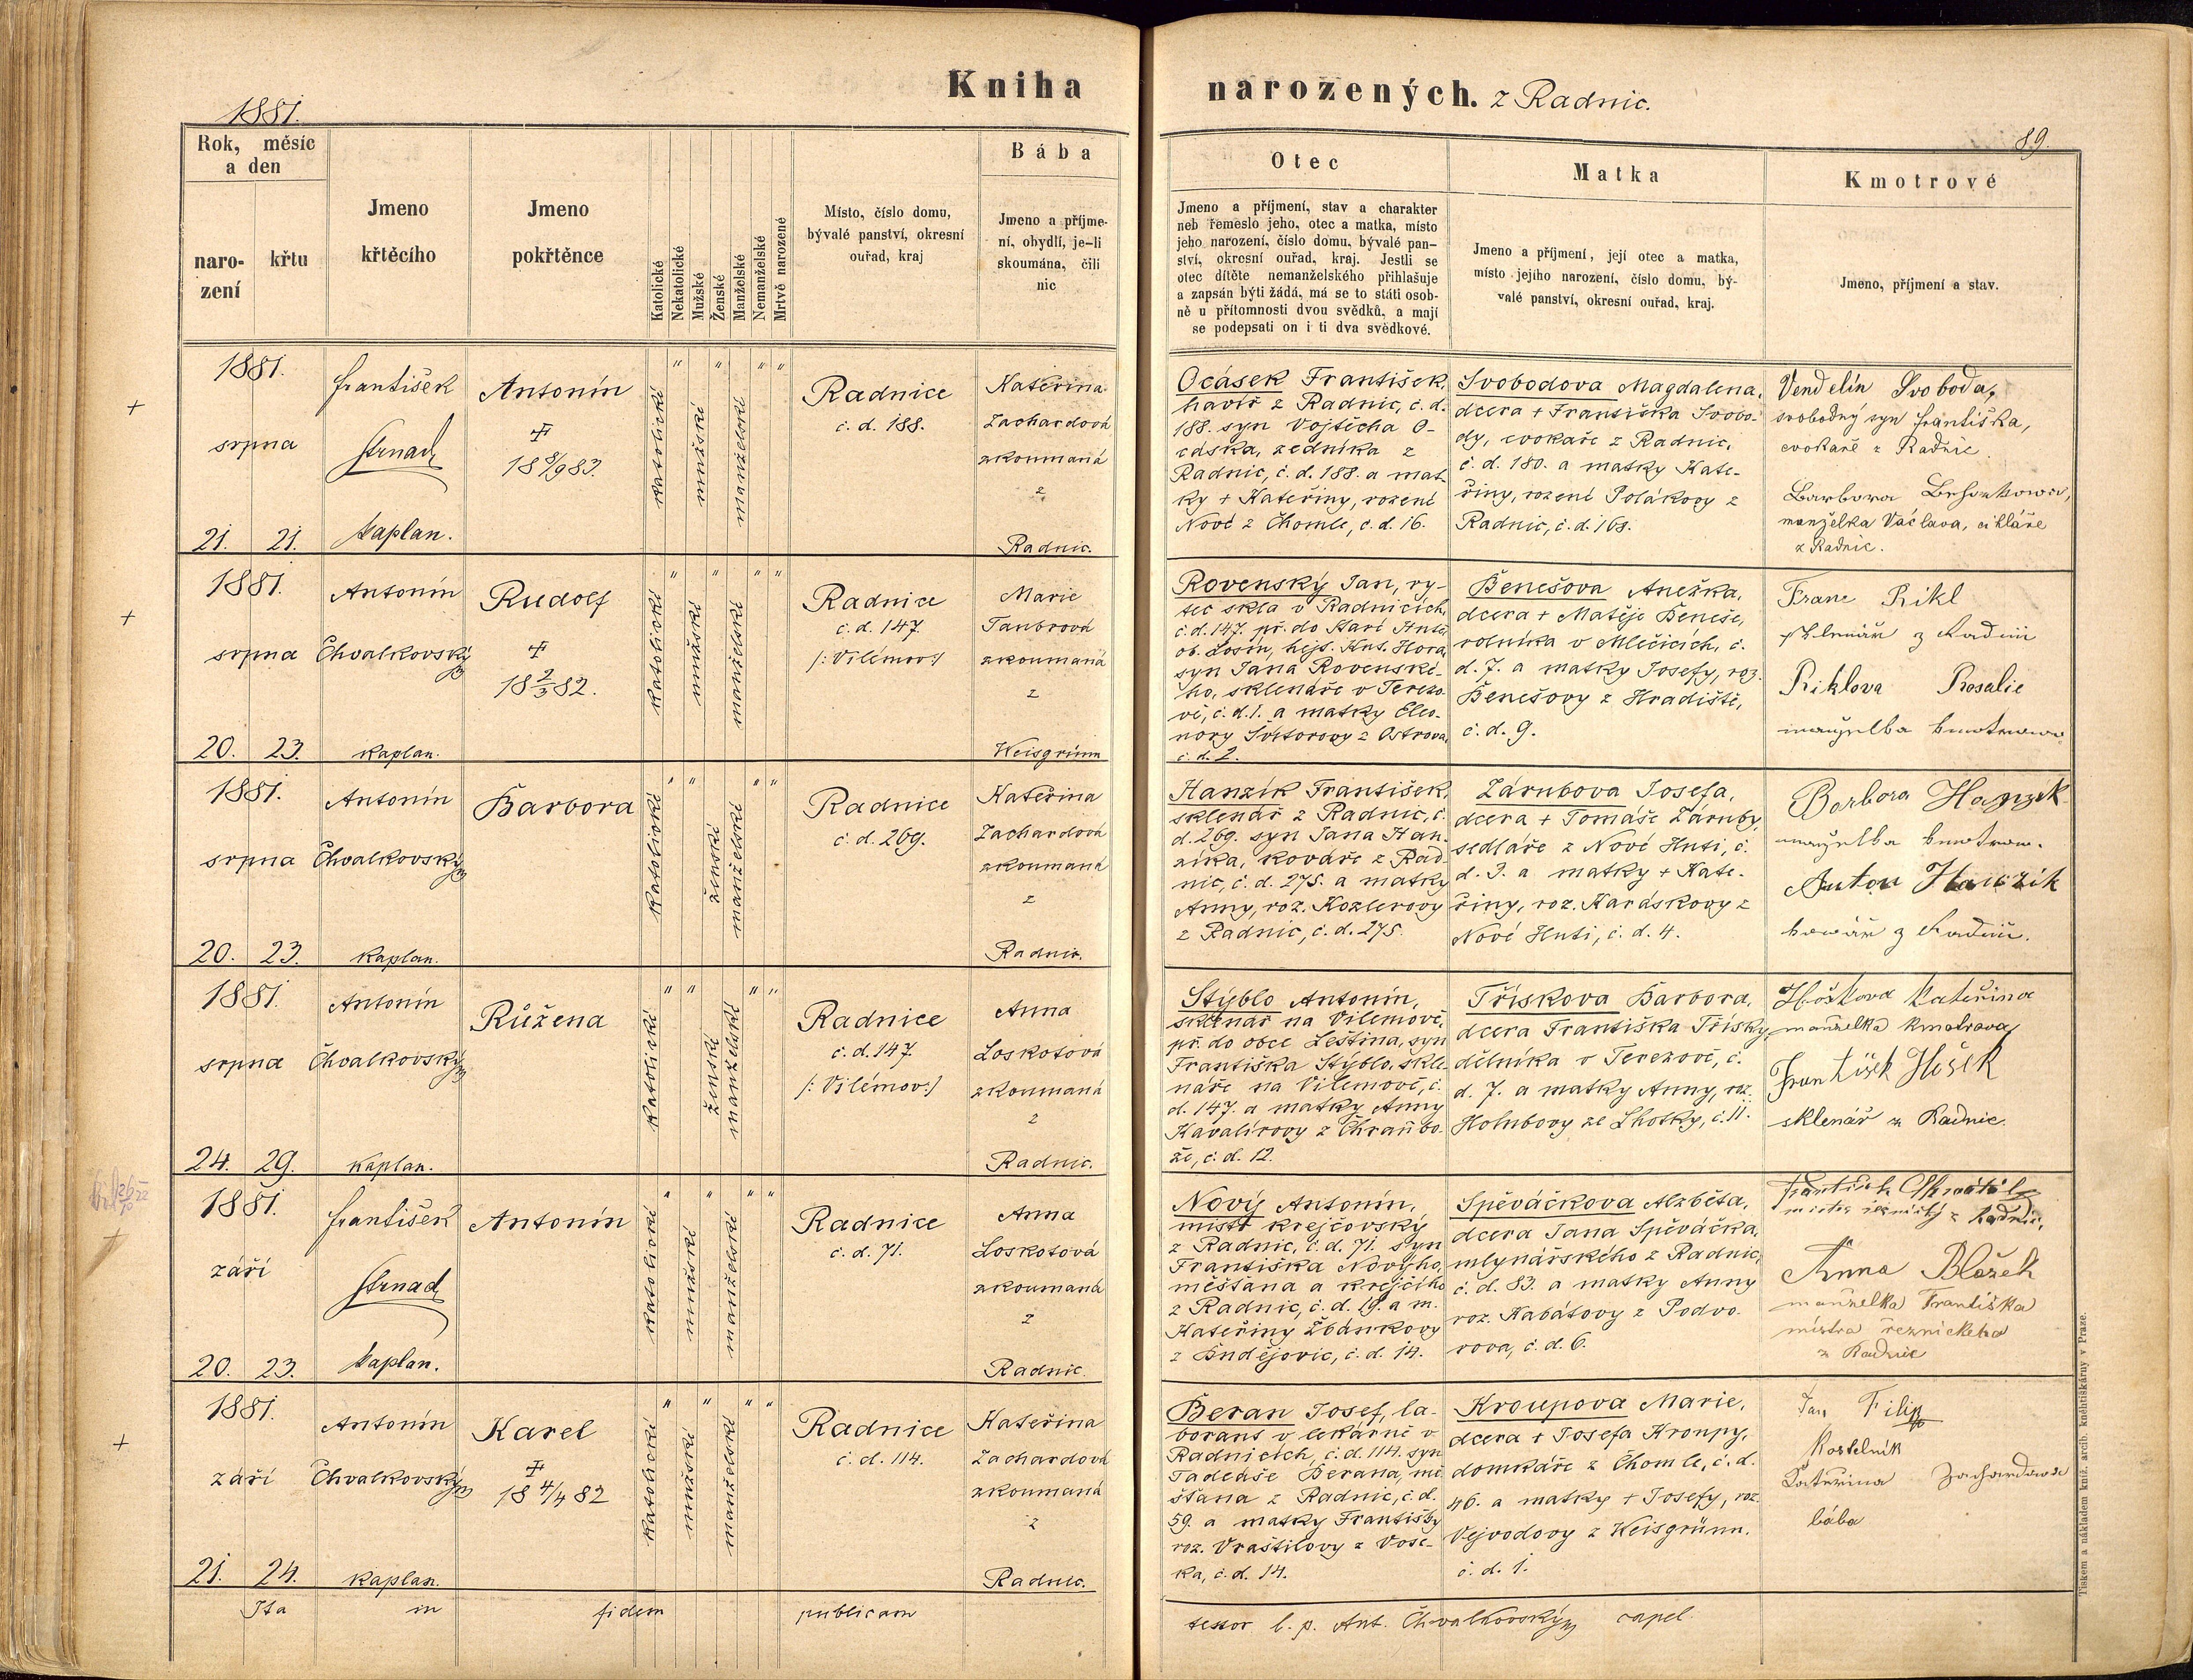 Kniha
narozených. z Radnic.
1881.
89.
Rok, měsíc
a den
naro-
zení
křtu
Jmeno
křtěcího
Jmeno
pokřtěnce
Katolické
Nekatolické
Mužské
Ženské
Manželské
Nemanželské
Mrtvě narozené
Místo, číslo domu,
bývalé panství, okresní
ouřad, kraj
Bába
Jmeno a příjme-
ní, obydlí, je-li
skoumána, čili
nic
Otec
Jmeno a příjmení, stav a charakter
neb řemeslo jeho, otec a matka, místo
jeho narození, číslo domu, bývalé pan-
ství, okresní ouřad, kraj. Jestli se
otec dítěte nemanželského přihlašuje
a zapsán býti žádá, má se to státi osob-
ně u přítomnosti dvou svědků, a mají
se podepsati on i ti dva svědkové.
Matka
Jmeno a příjmení, její otec a matka,
místo jejího narození, číslo domu, bý-
valé panství, okresní ouřad, kraj.
Kmotrové
Jmeno, příjmení a stav.
1881.
srpna
21. 21.
František
Strnad
kaplan.
Antonín
18 8/9 83.
katolické
mužské
manželské
Radnice
č. d. 188.
Kateřina
Zachardová
zkoumaná
z
Radnic.
Ocásek František,
havíř z Radnic, č. d.
188. syn Vojtěcha O-
cáska, zedníka z
Radnic, č. d. 188. a mat-
ky + Kateřiny, rozené
Nové z Chomle, č. d. 16.
Svobodova Magdalena,
dcera + Františka Svobo-
dy, cvokaře z Radnic,
č. d. 180. a matky Kate-
řiny, rozené Polákovy z
Radnic, č. d. 168.
Vendelín Svoboda,
svobodný syn Františka,
cvokaře z Radnic.
Barbora
manželka Václava, cihláře
z Radnic.
1881.
srpna
20. 23.
Antonín
Chvalkovský
kaplan.
Rudolf
18 2/3 82.
katolické
mužské
manželské
Radnice
č. d. 147.
/: Vilémov :/
Marie
Taubrová
zkoumaná
z
Weisgrünn
Rovenský Jan, ry-
tec skla v Radnicích,
č. d. 147. př. do Staré Huti
ob. Losín, hejt. Kut. Hora,
syn Jana Rovenské-
ho, sklenáře v Terezo-
vě, č. d. 1. a matky Eleo-
nory Svitorovy z Ostrova,
č. d. 2.
Benešova Anežka,
dcera + Matěje Beneše,
rolníka v Mlečicích, č.
d. 7. a matky Josefy, roz.
Benešovy z Hradiště,
č. d. 9.
Franc Rikl
sklenář z Radnic
Riklova Rosalie
manželka kmotrova
1881.
srpna
20. 23.
Antonín
Chvalkovský
kaplan.
Barbora
katolické
ženské
manželské
Radnice
č. d. 269.
Kateřina
Zachardová
zkoumaná
z
Radnic.
Hanzík František,
sklenář z Radnic, č.
d. 269. syn Jana Han-
zíka, kováře z Rad-
nic, č. d. 275. a matky
Anny, roz. Kozlerovy
z Radnic, č. d. 275.
Zárubova Josefa,
dcera + Tomáše Záruby,
sedláře z Nové Huti, č.
d. 3. a matky + Kate-
řiny, roz. Karáskovy z
Nové Huti, č. d. 4.
Barbora Hanzik
manželka kmotrow.
Anton Hanzik
kowář z Radnic.
1881.
srpna
24. 29.
Antonín
Chvalkovský
kaplan.
Růžena
katolické
ženské
manželské
Radnice
č. d. 147.
/: Vilémov :/
Anna
Loskotová
zkoumaná
z
Radnic.
Stýblo Antonín,
sklenář na Vilémově,
př. do obce Leština, syn
Františka Stýblo, skle-
náře na Vilémově, č.
d. 147. a matky Anny
Kavalírovy z Chraňbo-
že, č. d. 12.
Třískova Barbora,
dcera Františka Třísky,
dělníka v Terezově, č.
d. 7. a matky Anny, roz.
Holubovy ze Lhotky, č. 11.
Hoškova Kateřina
manželka kmotrova
František Hošek
sklenář z Radnic.
1881.
září
20. 23.
František
Strnad
kaplan.
Antonín
katolické
mužské
manželské
Radnice
č. d. 71.
Anna
Loskotová
zkoumaná
z
Radnic.
Nový Antonín,
mistr krejčovský
z Radnic, č. d. 71. syn
Františka Nového,
měšťana a krejčího
z Radnic, č. d. 19. a m.
Kateřiny Žbánkovy
z Bndějovic, č. d. 14.
Spěváčkova Alzběta,
dcera Jana Spěváčka,
mlynářského z Radnic,
č. d. 83. a matky Anny
roz. Kabátovy z Podvo-
rova, č. d. 6.
František
mistr řeznický z Radnic,
Anna Blažek
manželka Františka
mistra řeznického
z Radnic
1881.
září
21. 24.
Antonín
Chvalkovský
kaplan.
Karel
18 4/4 82
katolické
mužské
manželské
Radnice
č. d. 114.
Kateřina
Zachardová
zkoumaná
z
Radnic.
Beran Josef, la-
borant v lékárně v
Radnicích, č. d. 114. syn
Tadeáše Berana, mě-
šťana z Radnic, č. d.
59. a matky Františky
roz. Vraštilovy z Vose-
ka, č. d. 14.
Kroupova Marie,
dcera + Josefa Kroupy,
domkáře z Chomle, č. d.
46. a matky + Josefy, roz.
Vejvodovy z Weisgrünn.
č. d. 1.
Jan Filip
kostelník
Kateřina Zachardowa
bába
Ita in fidem publicam
testor l. p. Ant. Chvalkovský capel.
Tiskem a nákladem kníž. arcib. kněhtiskárny v Praze.